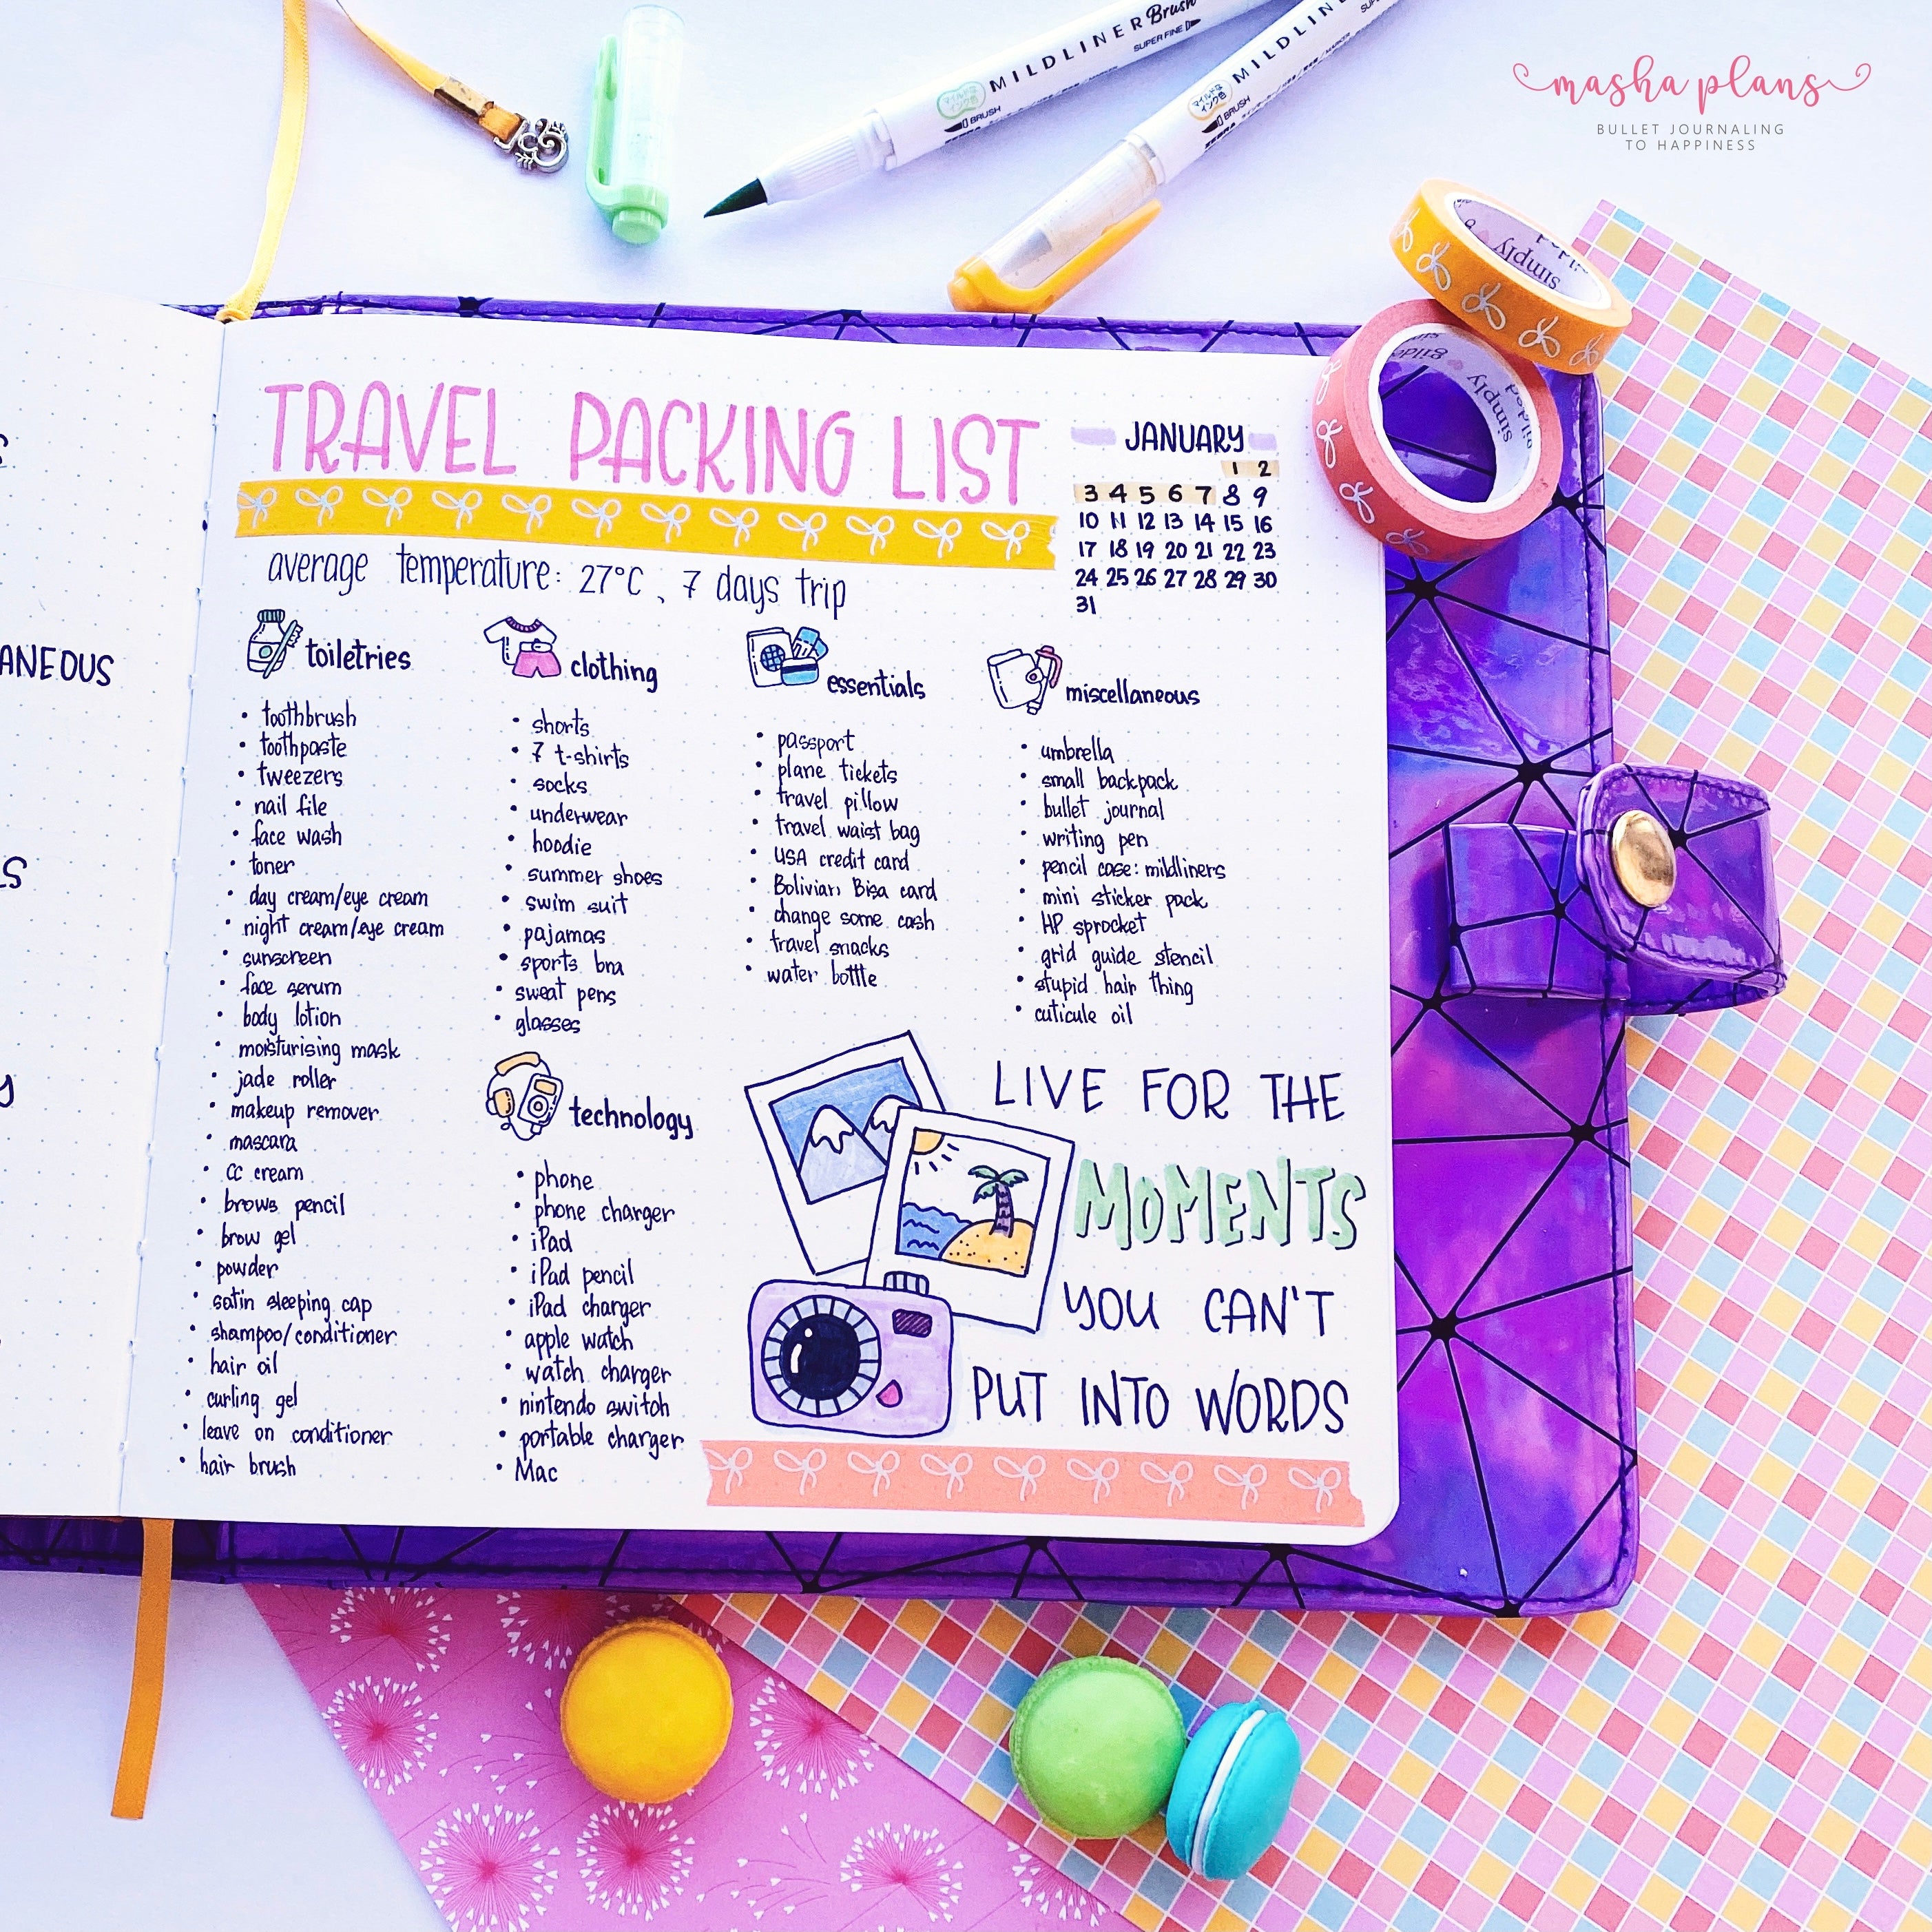 MILDLINER Brush
SUPER FINE
BRUSH
マイルドな
インク色
MILDLIN
BRUSH
マイルドな
インク色
masha plans
BULLET JOURNALING
TO HAPPINESS
simply
simply
gilded
ANEOUS
TRAVEL PACKING LIST
average temperature: 27°C, 7 days trip
JANUARY
1 2
3 4 5 6 7 8 9
10 11 12 13 14 15 16
17 18 19 20 21 22 23
24 25 26 27 28 29 30
31
toiletries
• toothbrush
• toothpaste
• tweezers
• nail file
• face wash
• toner
• day cream/eye cream
• night cream/eye cream
• sunscreen
• face serum
• body lotion
• moisturising mask
• jade roller
• makeup remover
• mascara
• CC cream
• brows pencil
• brow gel
• powder
• satin sleeping cap
• shampoo/conditioner
• hair oil
• curling gel
• leave on conditioner
• hair brush
clothing
• shorts
• 7 t-shirts
• socks
• underwear
• hoodie
• summer shoes
• swim suit
• pajamas
• sports bra
• sweat pens
• glasses
technology
• phone
• phone charger
• iPad
• iPad pencil
• iPad charger
• apple watch
• watch charger
• nintendo switch
• portable charger
• Mac
essentials
• passport
• plane tickets
• travel pillow
• travel waist bag
• USA credit card
• Bolivian Bisa card
• change some cash
• travel snacks
• water bottle
miscellaneous
• umbrella
• small backpack
• bullet journal
• writing pen
• pencil case: mildliners
• mini sticker pack
• HP sprocket
• grid guide stencil
• stupid hair thing
• cuticule oil
LIVE FOR THE
MOMENTS
YOU CAN'T
PUT INTO WORDS